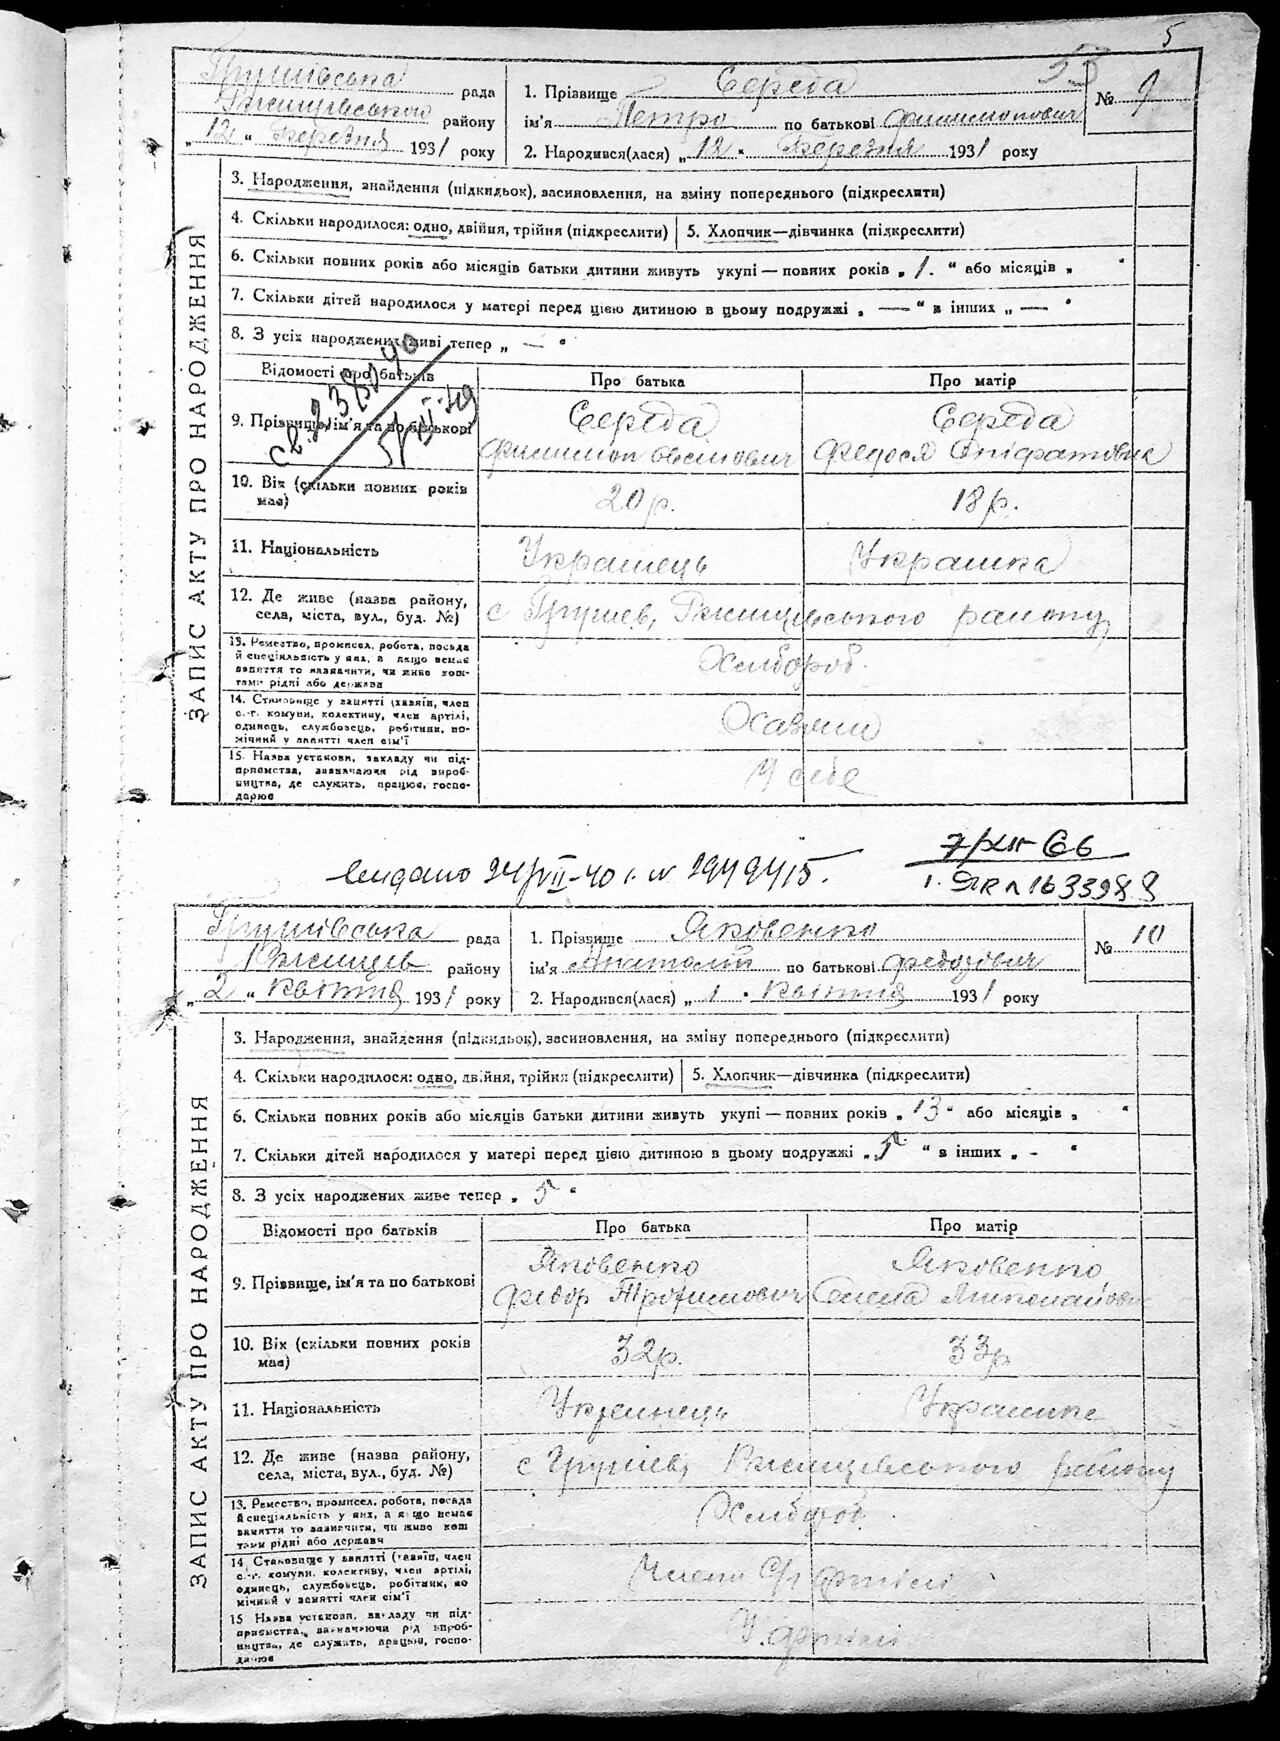 5
53
Грушівська рада
Ржищівського району
„ 12 “ Березня 1931 року
1. Прізвище Середа
ім'я Петро по батькові Филимонович
2. Народився(лася) „ 12 “ Березня 1931 року
№ 9
ЗАПИС АКТУ ПРО НАРОДЖЕННЯ
3. Народження, знайдення (підкидьок), засиновлення, на зміну попереднього (підкреслити)
4. Скільки народилося: одно, двійня, трійня (підкреслити)
5. Хлопчик—дівчинка (підкреслити)
6. Скільки повних років або місяців батьки дитини живуть укупі — повних років „ 1. “ або місяців „ “
7. Скільки дітей народилося у матері перед цією дитиною в цьому подружжі „ — “ в інших „ — “
8. З усіх народжених живі тепер „ — “
Відомості про батьків
Про батька
Про матір
9. Прізвище, ім'я та по батькові
Середа
Филимон
Середа
Федося
10. Вік (скільки повних років має)
20 р.
18 р.
11. Національність
Українець
Українка
12. Де живе (назва району, села, міста, вул., буд. №)
с Грушев, Ржищівського району
13. Ремество, промисел, робота, посада й спеціяльність у них, а якщо немає заняття то зазначити, чи живе коштами рідні або держави
Хлібороб.
14. Становище у занятті (хазяїн, член с.-г. комуни, колективу, член артілі, одинець, службовець, робітник, помічний у занятті член сім'ї
15. Назва установи, закладу чи підприємства, зазначаючи рід виробництва, де служить, працює, господарює
У себе
Видано 24/VII-40 г. № 2949415.
7/XII-66
1633988
Грушівська рада
Ржищів району
„ 2 “ Квітня 1931 року
1. Прізвище Яковенко
ім'я Анатолій по батькові Федорович
2. Народився(лася) „ 1 “ Квітня 1931 року
№ 10
ЗАПИС АКТУ ПРО НАРОДЖЕННЯ
3. Народження, знайдення (підкидьок), засиновлення, на зміну попереднього (підкреслити)
4. Скільки народилося: одно, двійня, трійня (підкреслити)
5. Хлопчик—дівчинка (підкреслити)
6. Скільки повних років або місяців батьки дитини живуть укупі — повних років „ 13 “ або місяців „ “
7. Скільки дітей народилося у матері перед цією дитиною в цьому подружжі „ 5 “ в інших „ - “
8. З усіх народжених живе тепер „ 5 “
Відомості про батьків
Про батька
Про матір
9. Прізвище, ім'я та по батькові
Яковенко
Федор Трофимович
Яковенко
Олена Миколаївна
10. Вік (скільки повних років має)
32 р.
33 р
11. Національність
Українець
Українка
12. Де живе (назва району, села, міста, вул., буд. №)
с Грушев, Ржищівського району
13. Ремество, промисел, робота, посада й спеціяльність у них, а якщо немає заняття то зазначити, чи живе коштами рідні або держави
Хлібороб
14. Становище у занятті (хазяїн, член с.-г. комуни, колективу, член артілі, одинець, службовець, робітник, помічний у занятті член сім'ї
Члени С/г артілі
15. Назва установи, закладу чи підприємства, зазначаючи рід виробництва, де служить, працює, господарює
У артілі